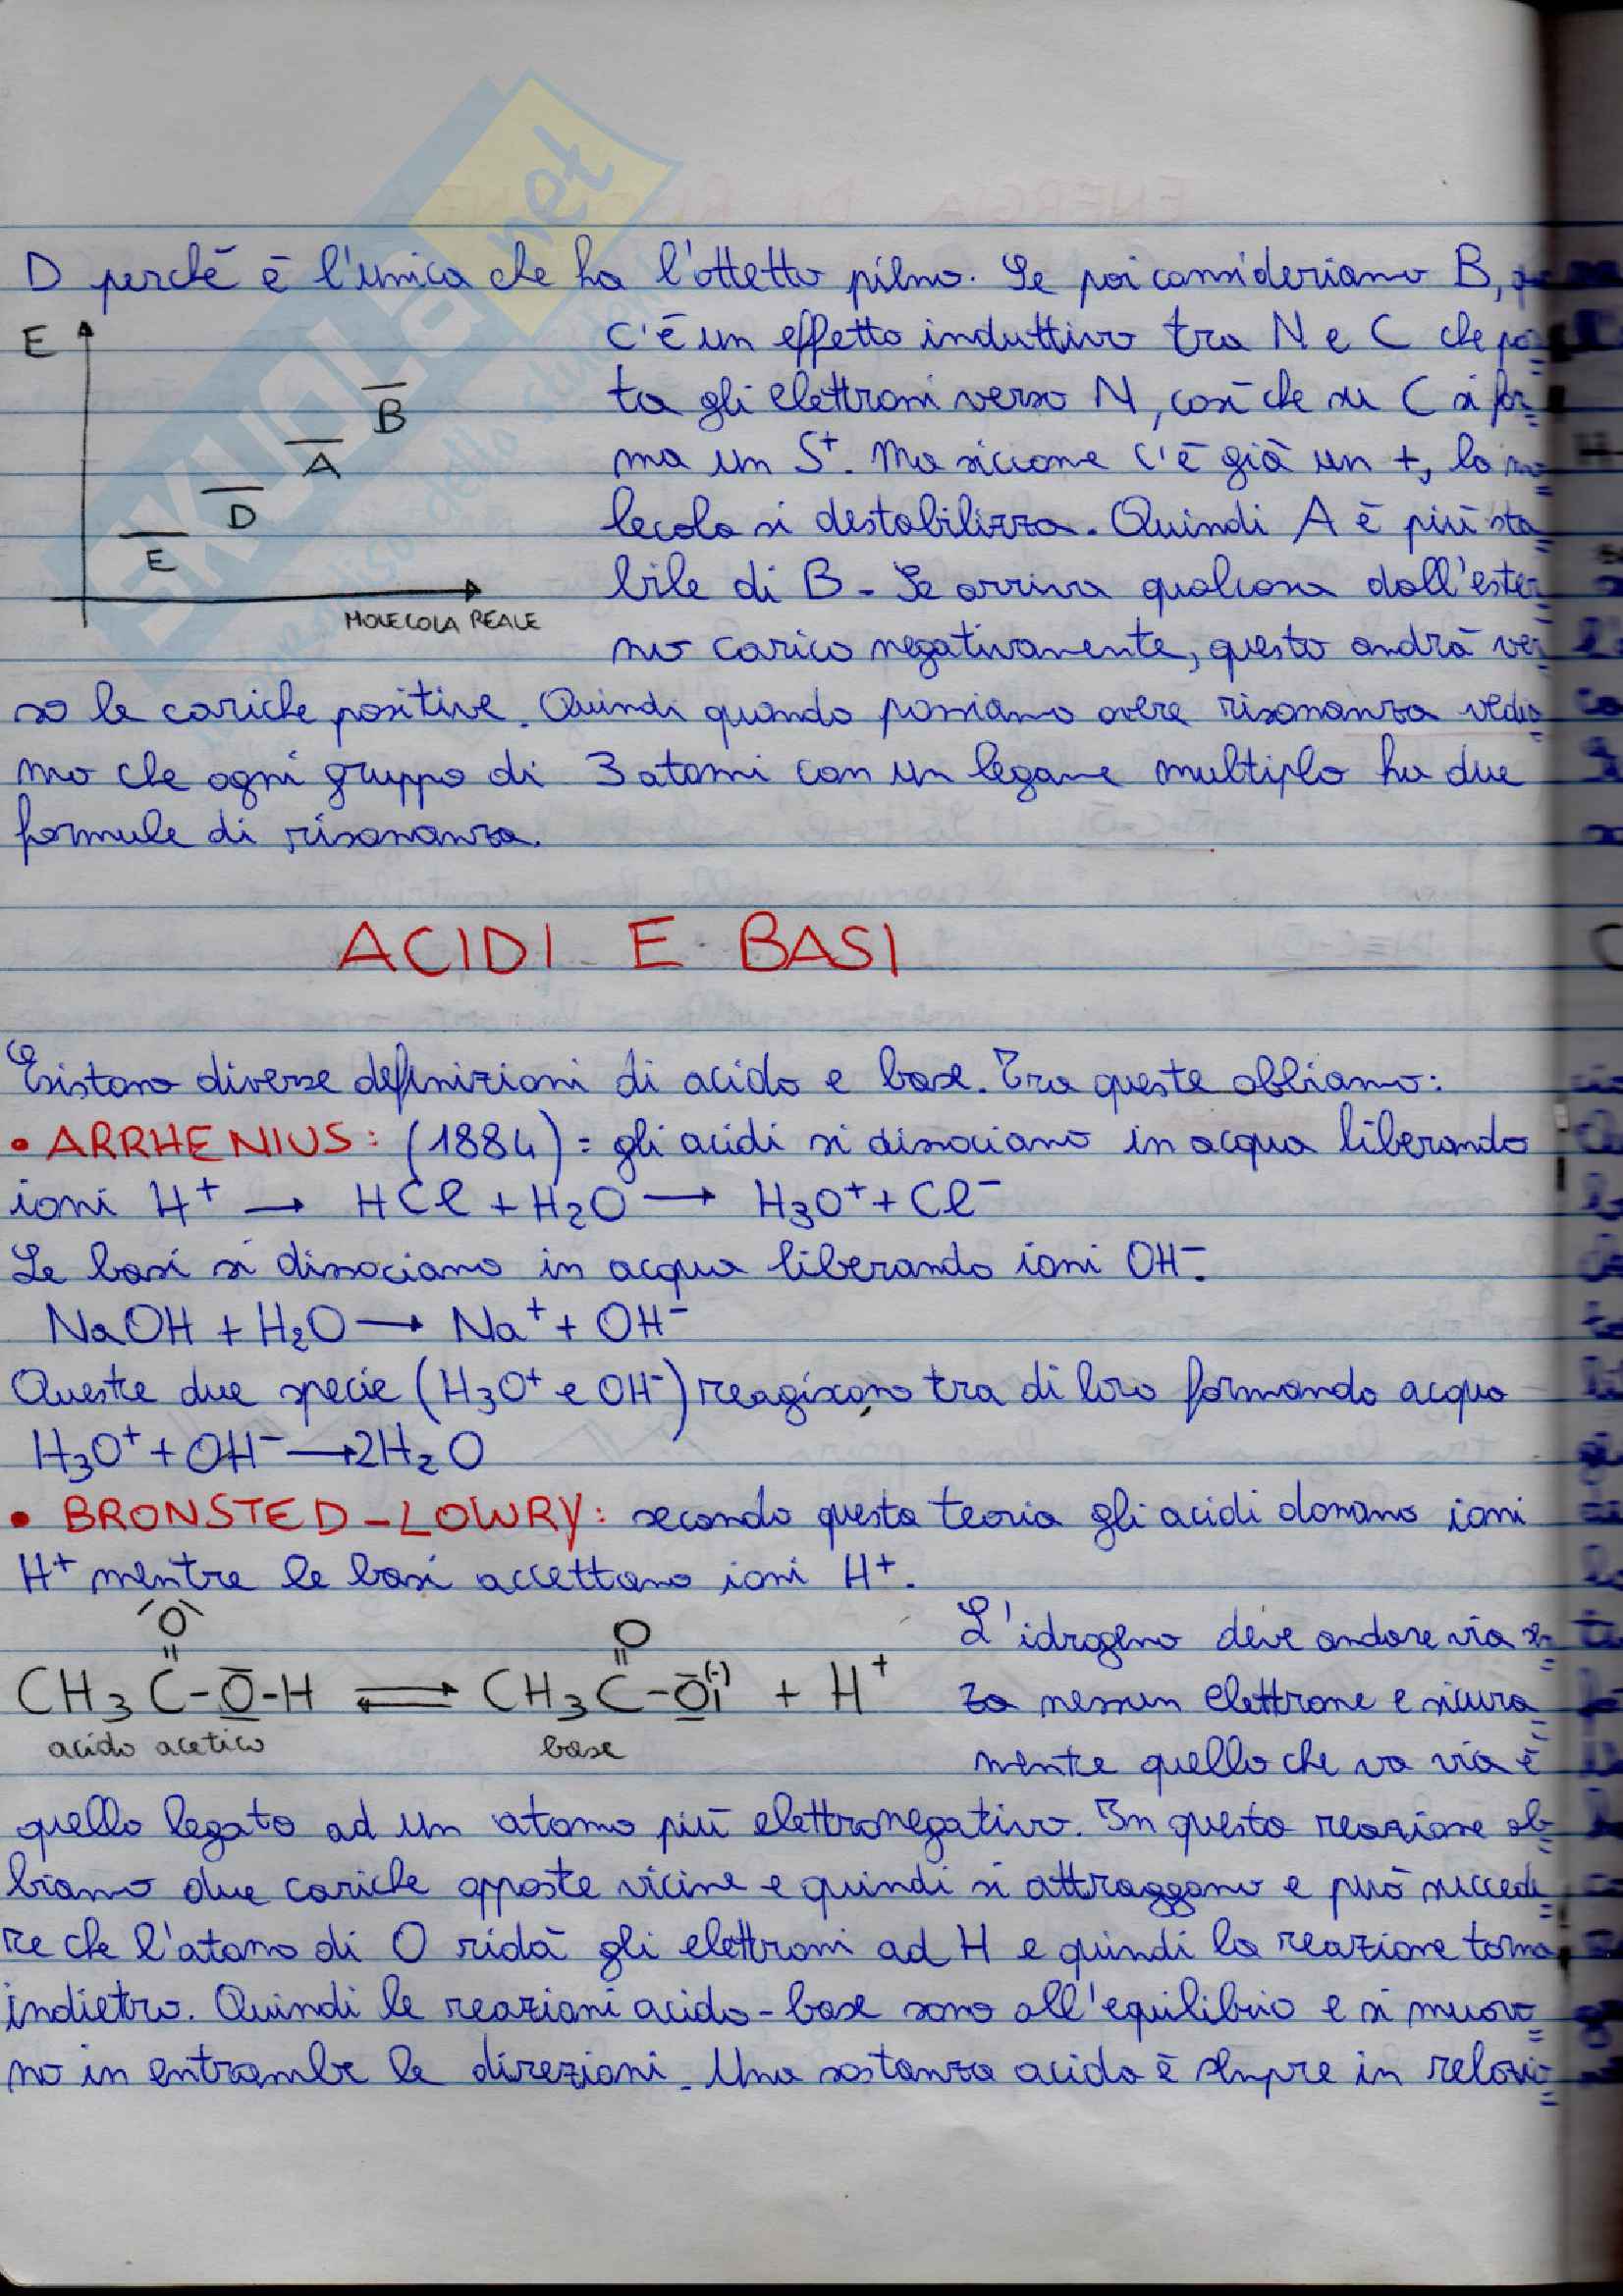 SKUOLA.net
ENERGIA DI
D perchè è l'unica che ha l'ottetto pilno. Se poi consideriamo B,
E
c'è un effetto induttivo tra N e C che por=
ta gli elettroni verso N, così che su C si for=
B
ma un S+. Ma siccome c'è già un +, la mo=
A
lecola si destabilizza. Quindi A è più sta=
D
E
bile di B. Se arriva qualcosa dall'ester=
MOLECOLA REALE
no carico negativamente, questo andrà ver=
so le cariche positive. Quindi quando possiamo avere risonanza vedia=
mo che ogni gruppo di 3 atomi con un legame multiplo ha due
formule di risonanza.
ACIDI E BASI
Esistono diverse definizioni di acido e base. Tra queste abbiamo:
• ARRHENIUS: (1884) = gli acidi si dissociano in acqua liberando
ioni H+ → HCl + H2O → H3O+ + Cl-
Le basi si dissociano in acqua liberando ioni OH-.
NaOH + H2O → Na+ + OH-
Queste due specie (H3O+ e OH-) reagiscono tra di loro formando acqua
H3O+ + OH- → 2H2O
• BRONSTED-LOWRY: secondo questa teoria gli acidi donano ioni
H+ mentre le basi accettano ioni H+.
O O
L'idrogeno deve andare via sen=
CH3 C-O-H ⇌ CH3 C-O(-) + H+
za nessun elettrone e sicura=
acido acetico base
mente quello che va via è
quello legato ad un atomo più elettronegativo. In questa reazione ab=
biamo due cariche opposte vicine e quindi si attraggono e può succede=
re che l'atomo di O ridà gli elettroni ad H e quindi la reazione torna
indietro. Quindi le reazioni acido-base sono all'equilibrio e si muovo=
no in entrambe le direzioni. Una sostanza acida è sempre in relazio=